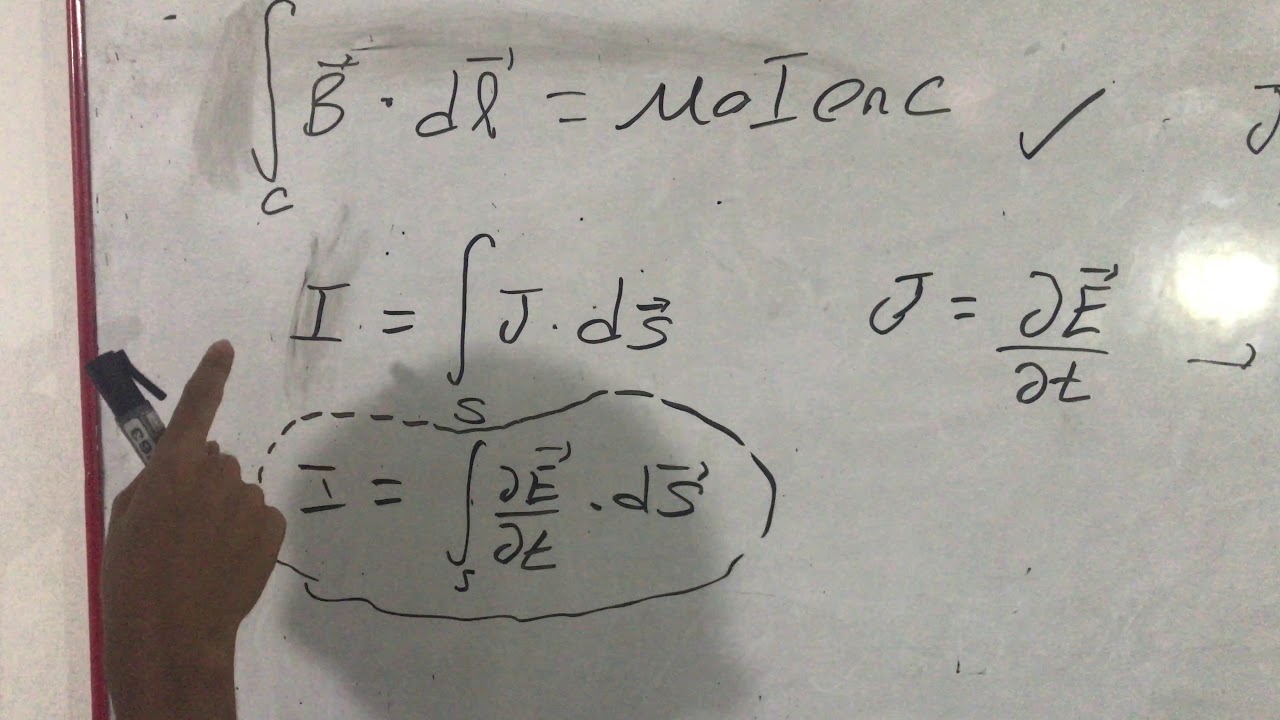 ∫_C B⃗ · dl⃗ = μo I enc ✓ J
I = ∫_S J · ds⃗ J = ∂E⃗/∂t →
I = ∫_S ∂E⃗/∂t · dS⃗